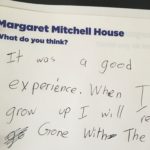 Margaret Mitchell House
What do you think?
It was a good
experience. When I
grow up I will re
Gone With The